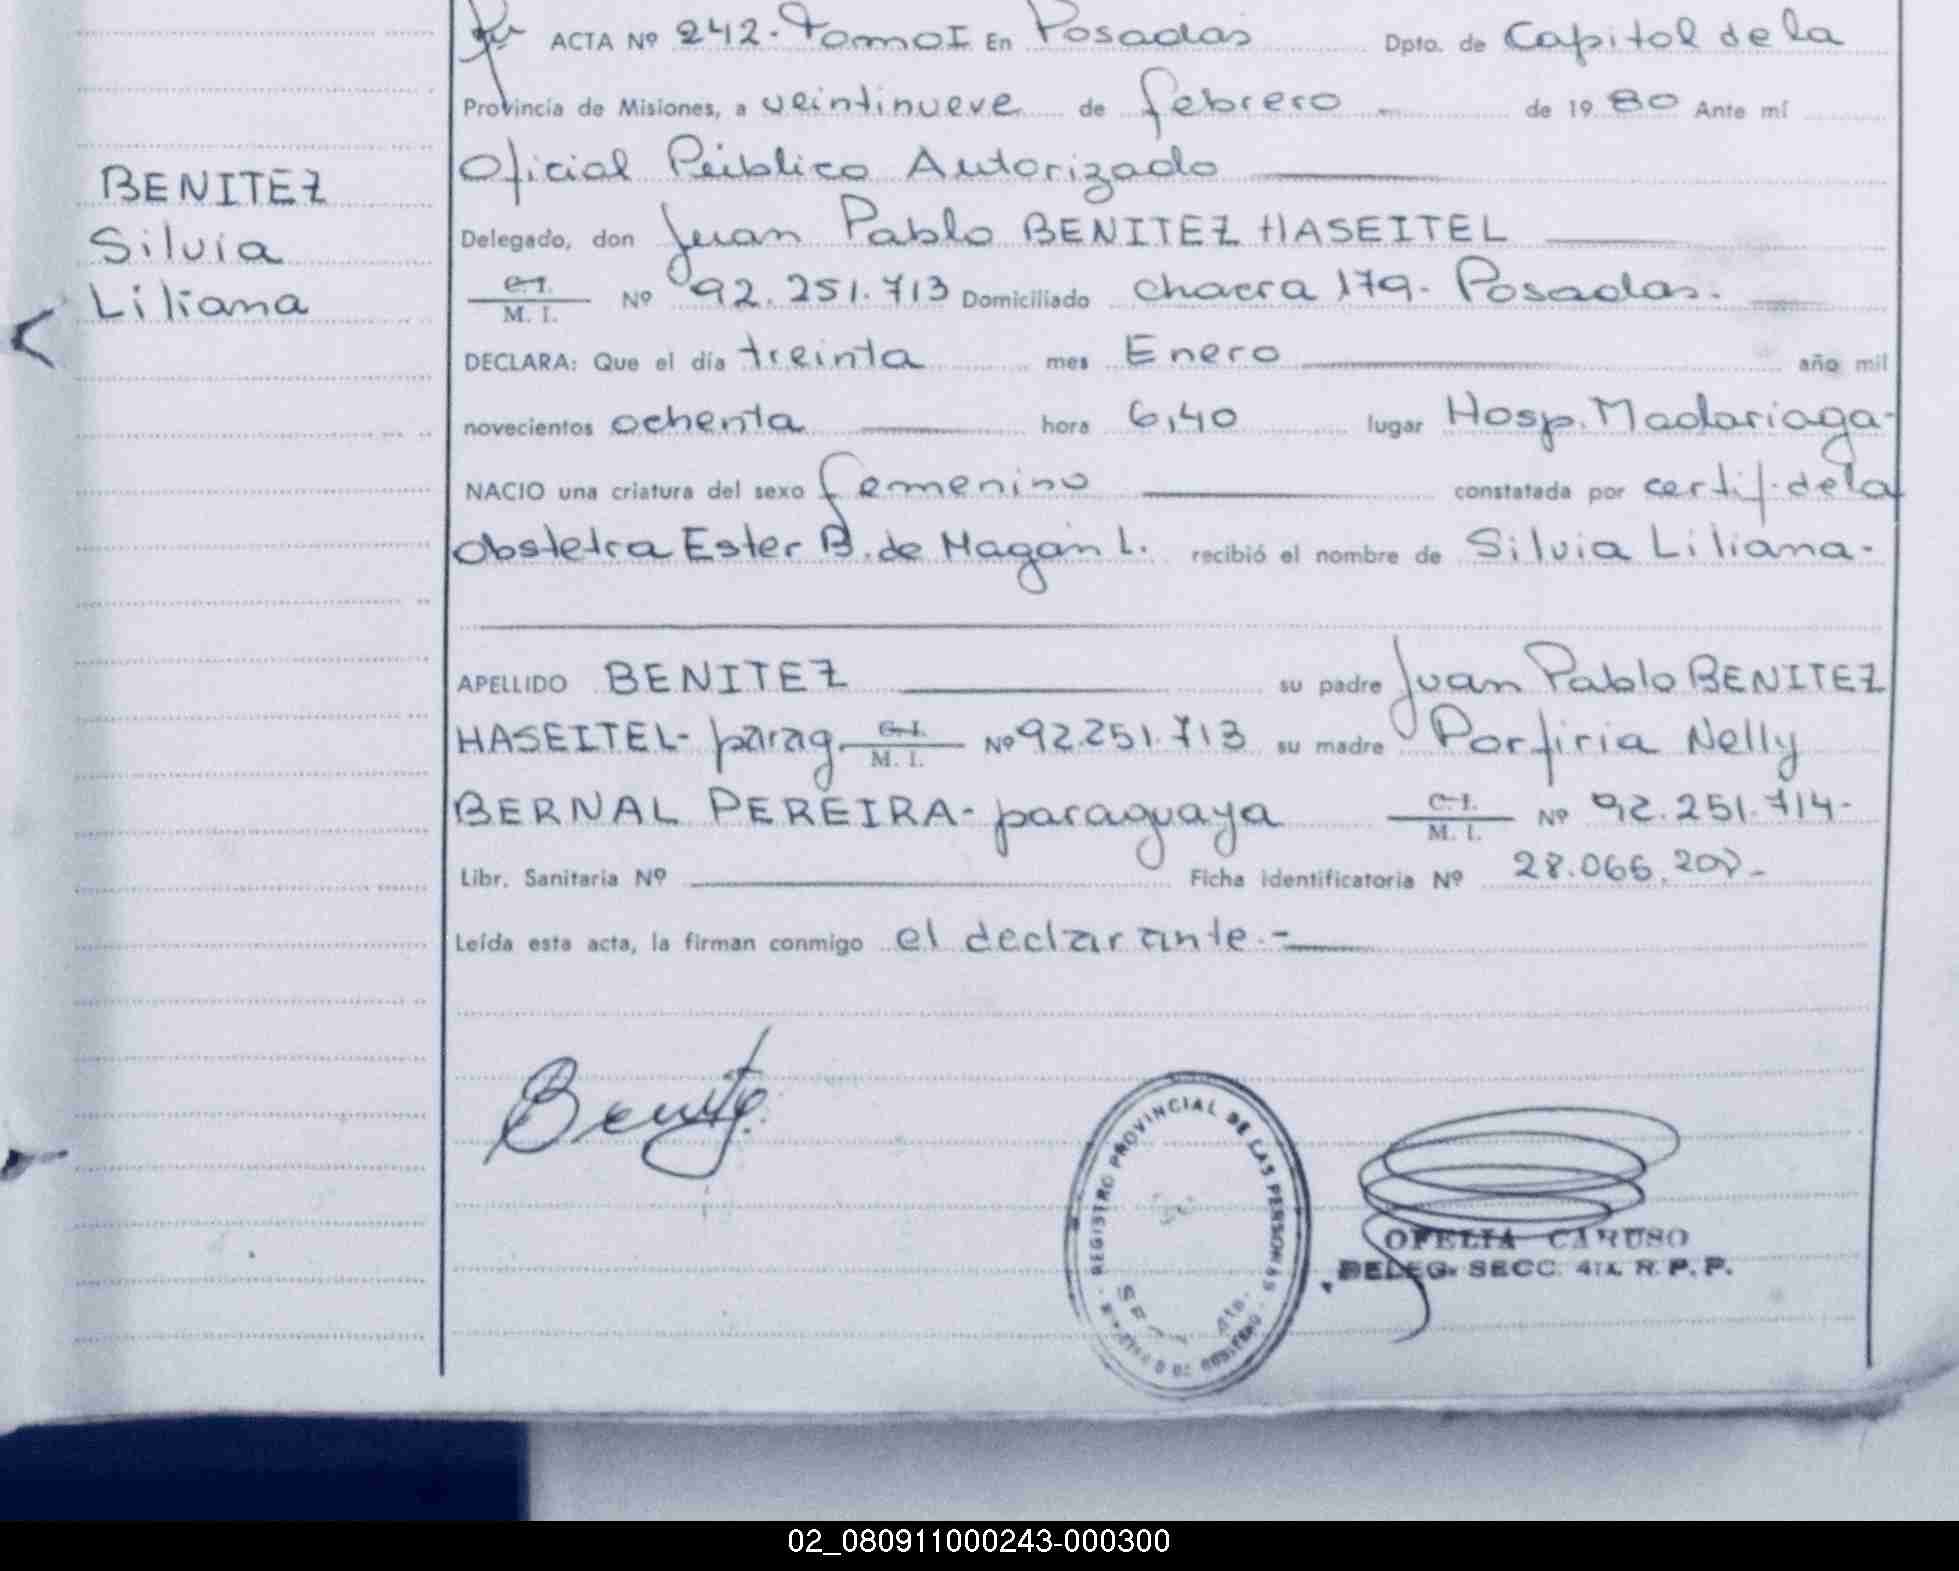 ACTA Nº 242. Tomo I En Posadas Dpto. de Capital de la
Provincia de Misiones, a veintinueve de febrero de 1980 Ante mí
Oficial Público Autorizado
Delegado, don Juan Pablo BENITEZ HASEITEL
C.I. M. I. Nº 92.251.713 Domiciliado chacra 179. Posadas.
DECLARA: Que el día treinta mes Enero año mil
novecientos ochenta hora 6,40 lugar Hosp. Madariaga-
NACIO una criatura del sexo femenino constatada por certif. de la
Obstetra Ester B. de Magán L. recibió el nombre de Silvia Liliana-
APELLIDO BENITEZ su padre Juan Pablo BENITEZ
HASEITEL- parag. C.I. M. I. Nº 92.251.713 su madre Porfiria Nelly
BERNAL PEREIRA- paraguaya C.I. M. I. Nº 92.251.714-
Libr. Sanitaria Nº Ficha identificatoria Nº 28.066.20
Leída esta acta, la firman conmigo el declarante.-
BENITEZ
Silvia
Liliana
Benitez
REGISTRO PROVINCIAL DE LAS PERSONAS
OFELIA CARUSO
DELEG. SECC. 4TA. R. P. P.
02_080911000243-000300